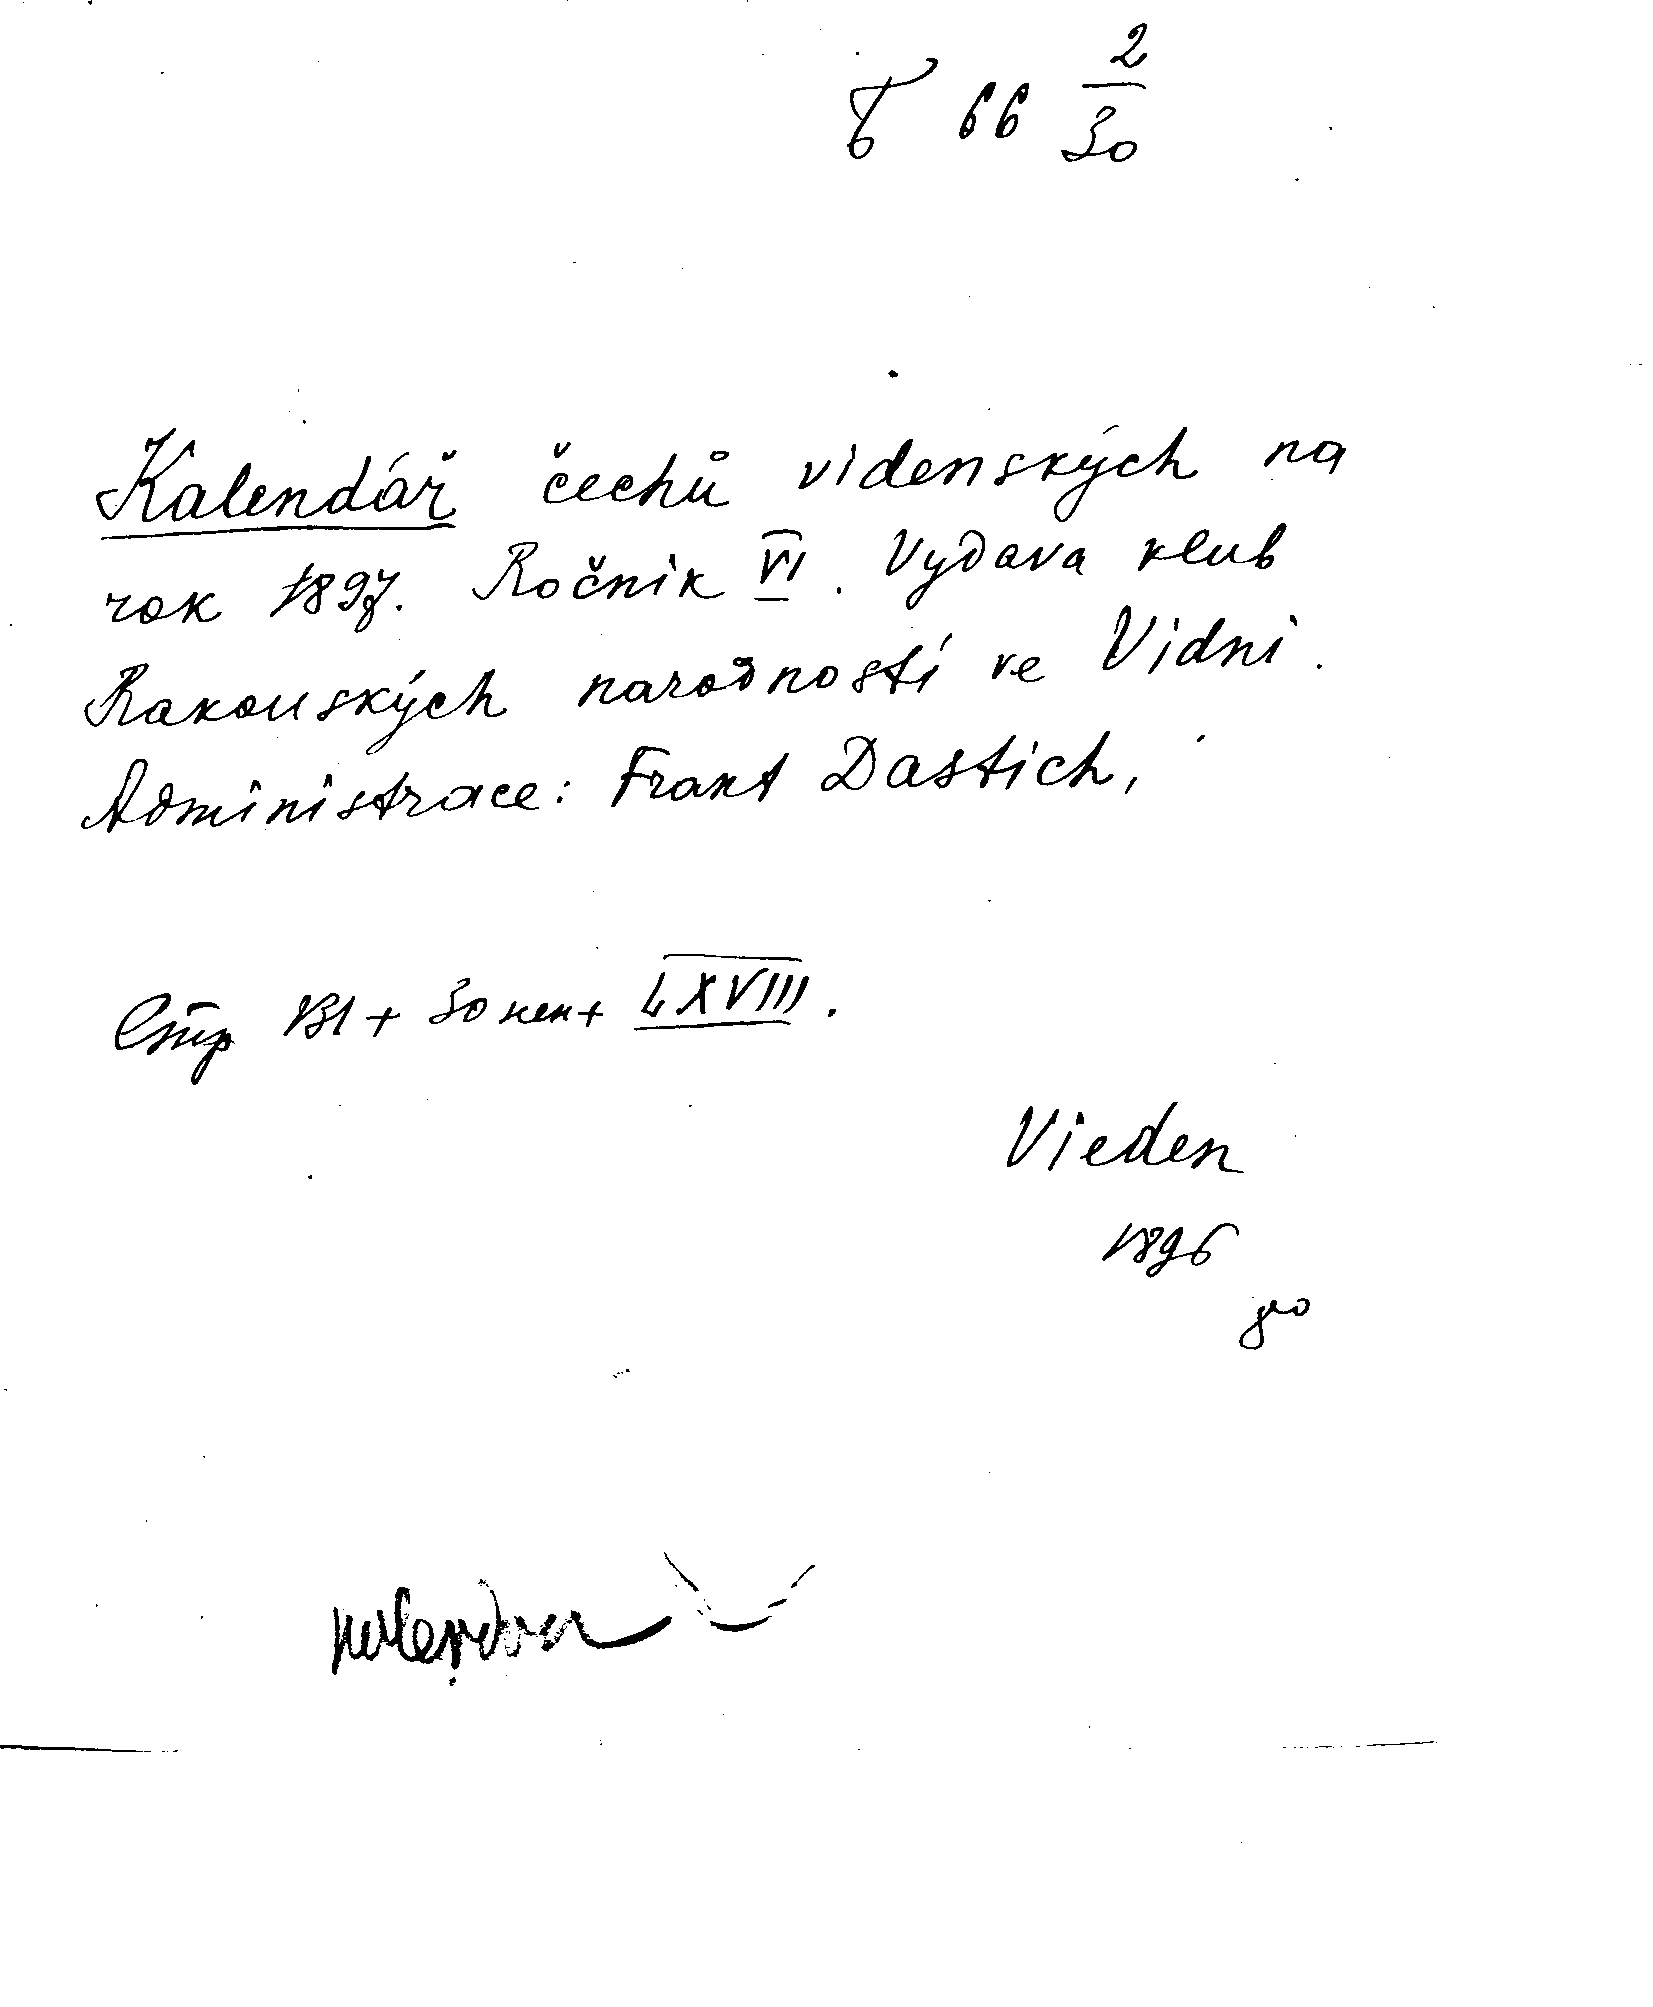 66 2/30
Kalendář čechů videnských na
rok 1897. Ročnik VI. Vydava klub
Rakouských narodnostī ve Vidni.
Administrace: Frant Dastich,
Стр 131 + 30 нен + LXVIII.
Vieden
1896